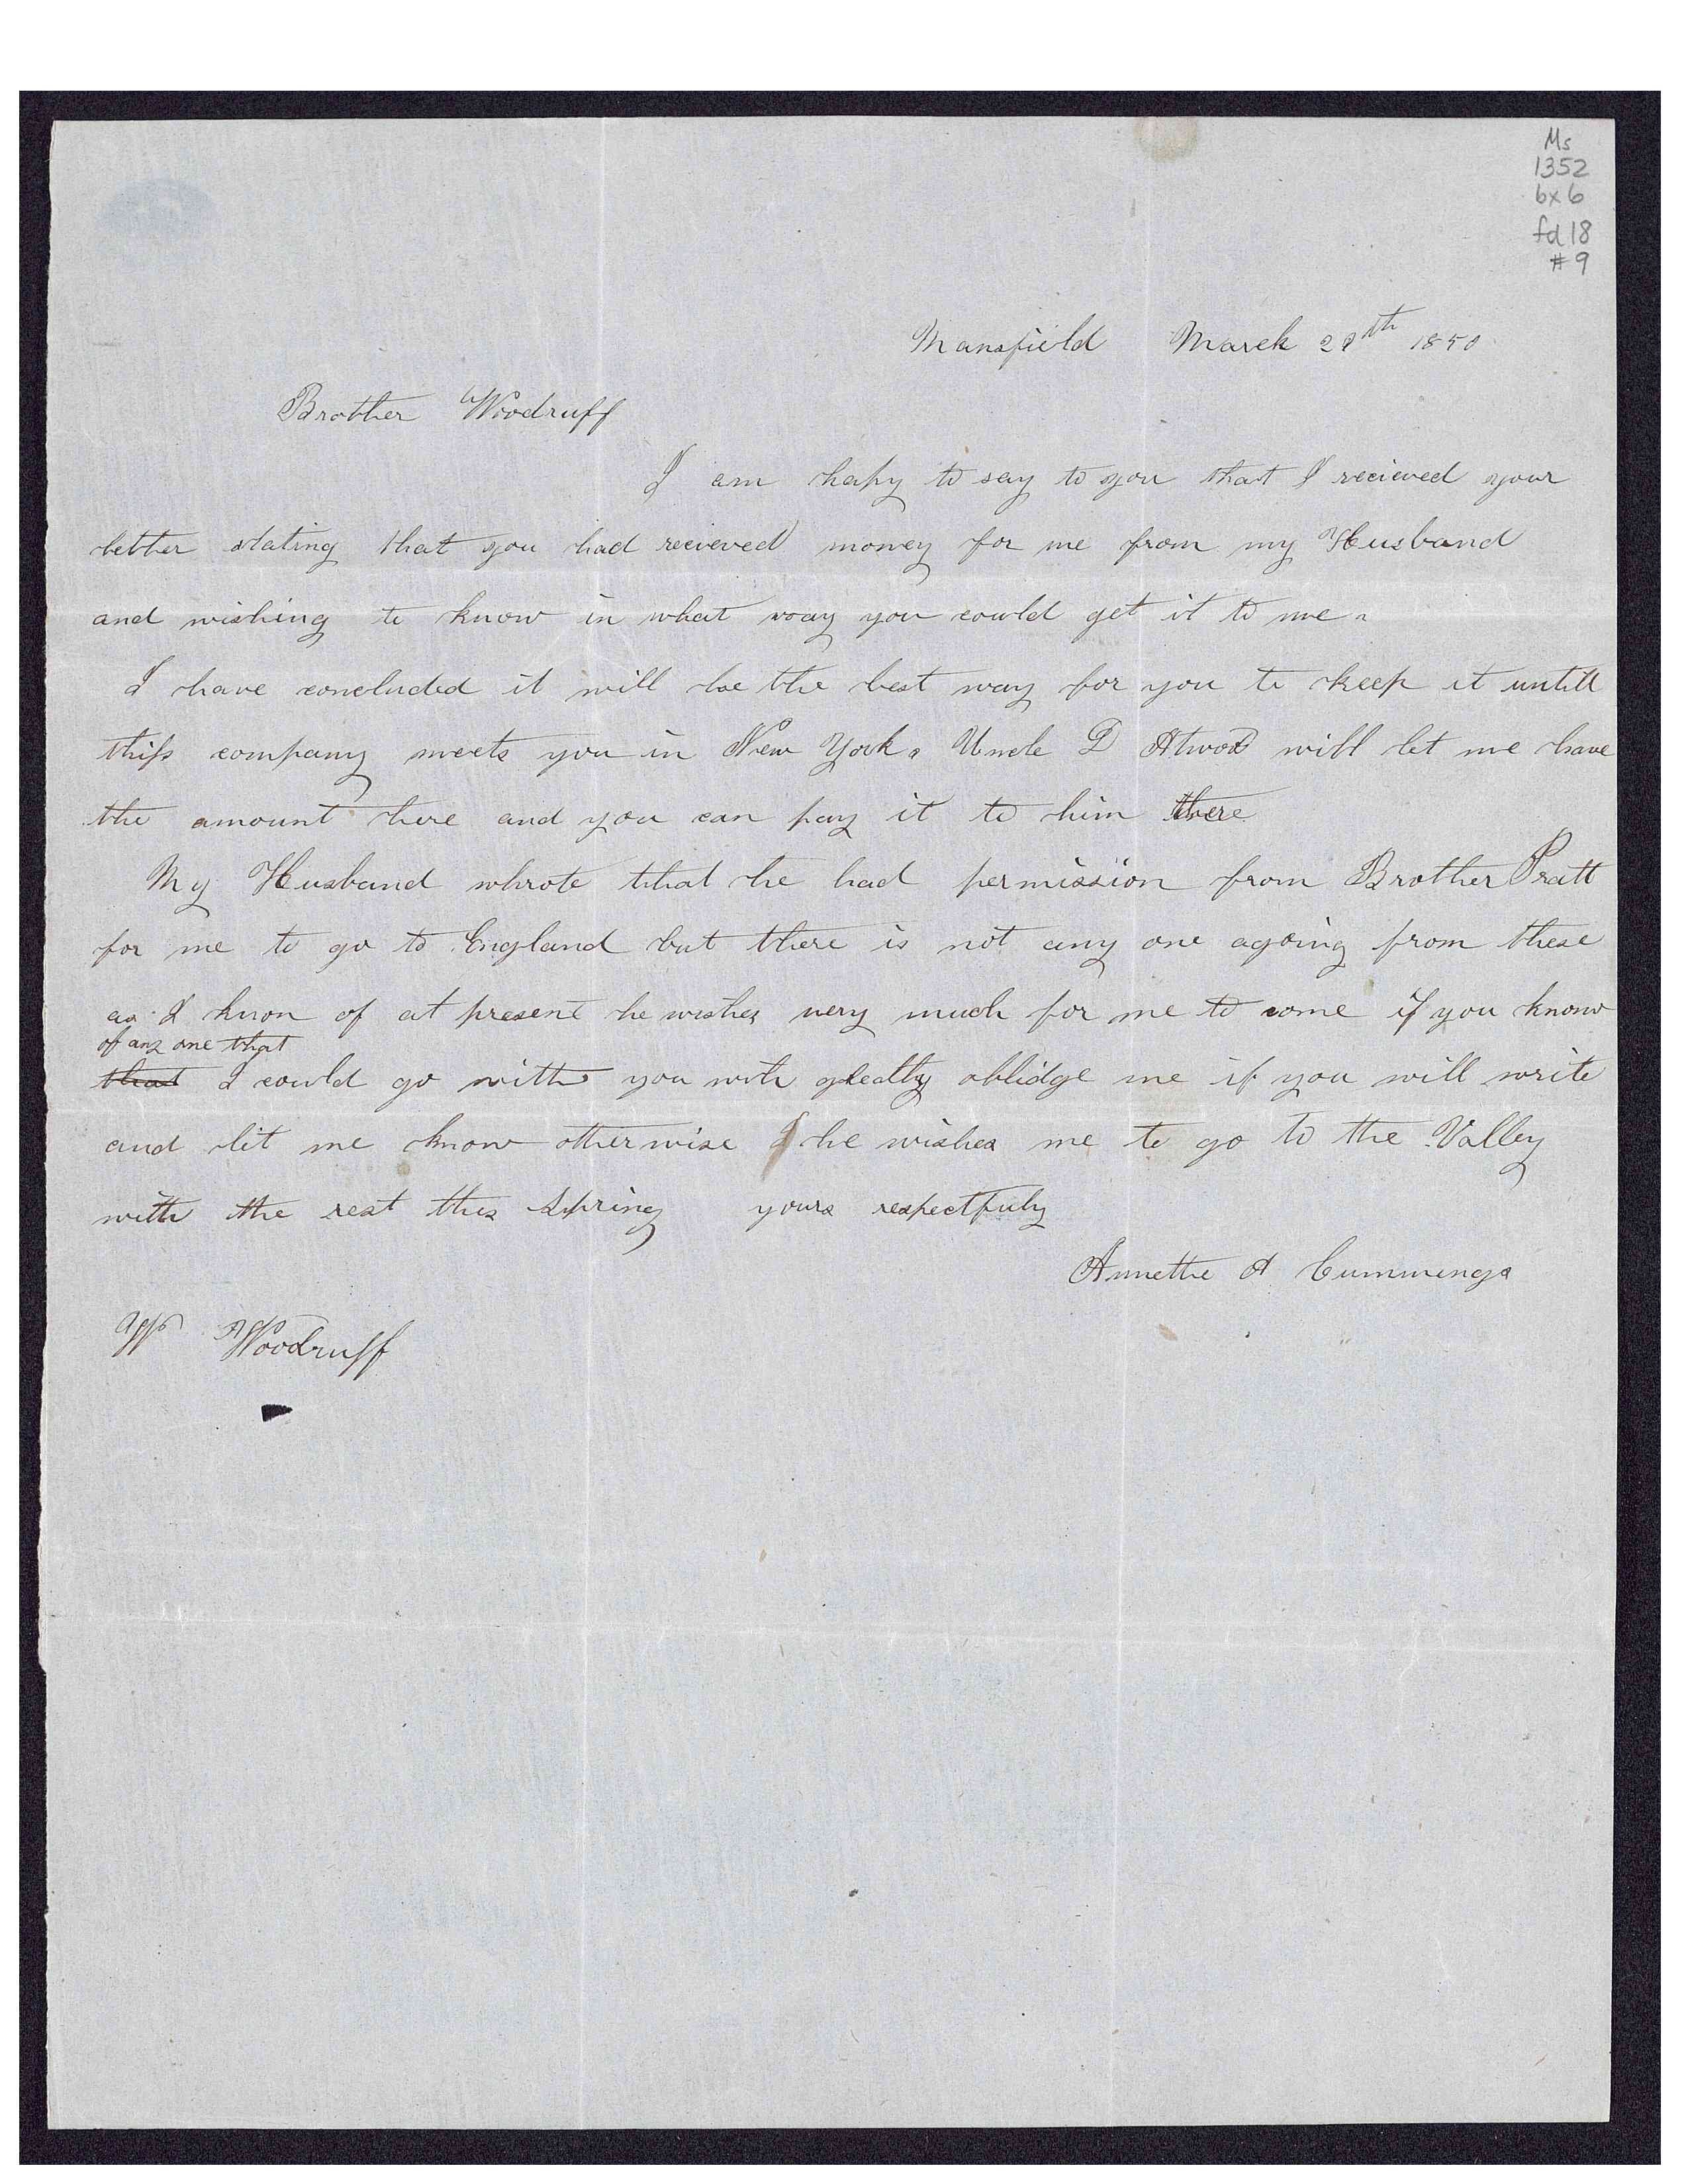 Ms
1352
bx 6
fd 18
#9
Mansfield March 29th 1850
Brother Woodruff
I am hapy to say to you that I recieved your
letter stating that you had recieved money for me from my Husband
and wishing to know in what way you could get it to me.
I have concluded it will be the best way for you to keep it untill
this company meets you in New York. Uncle D Atwood will let me have
the amount here and you can pay it to him there
My Husband whrote that he had permission from Brother Pratt
for me to go to England but there is not any one agoing from these
as I know of at present he wishes very much for me to come if you know
of any one that
that I could go with you will greatly oblidge me if you will write
and let me know otherwise he wishes me to go to the Valley
with the rest this Spring yours respectfuly
Annette A Cummings
Woodruff